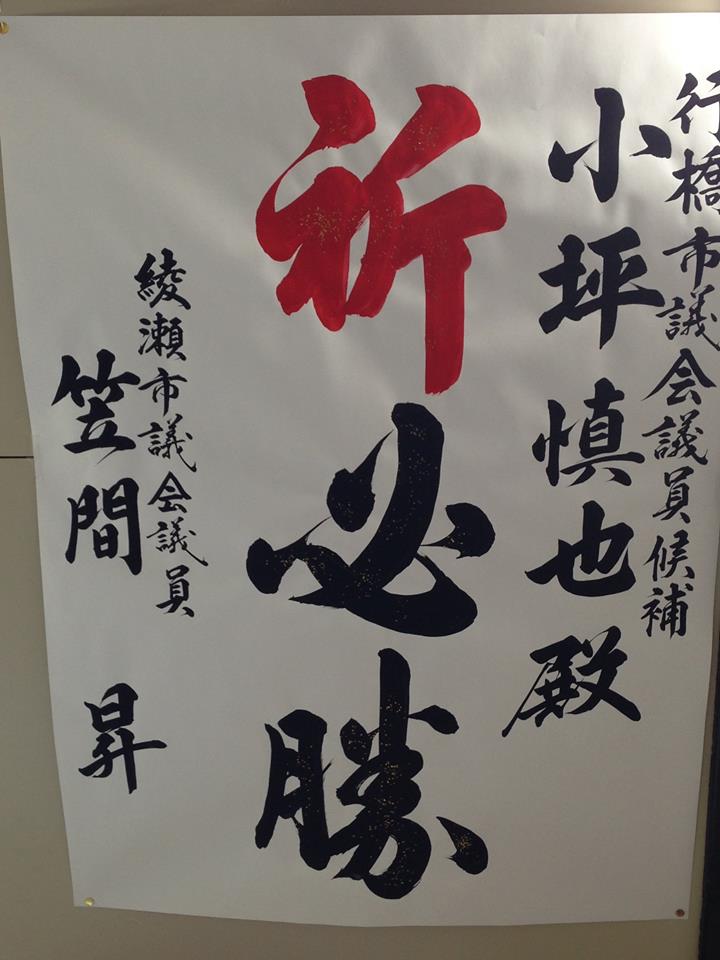 行橋市議会議員候補
小坪慎也殿
祈必勝
綾瀬市議会議員
笠間昇